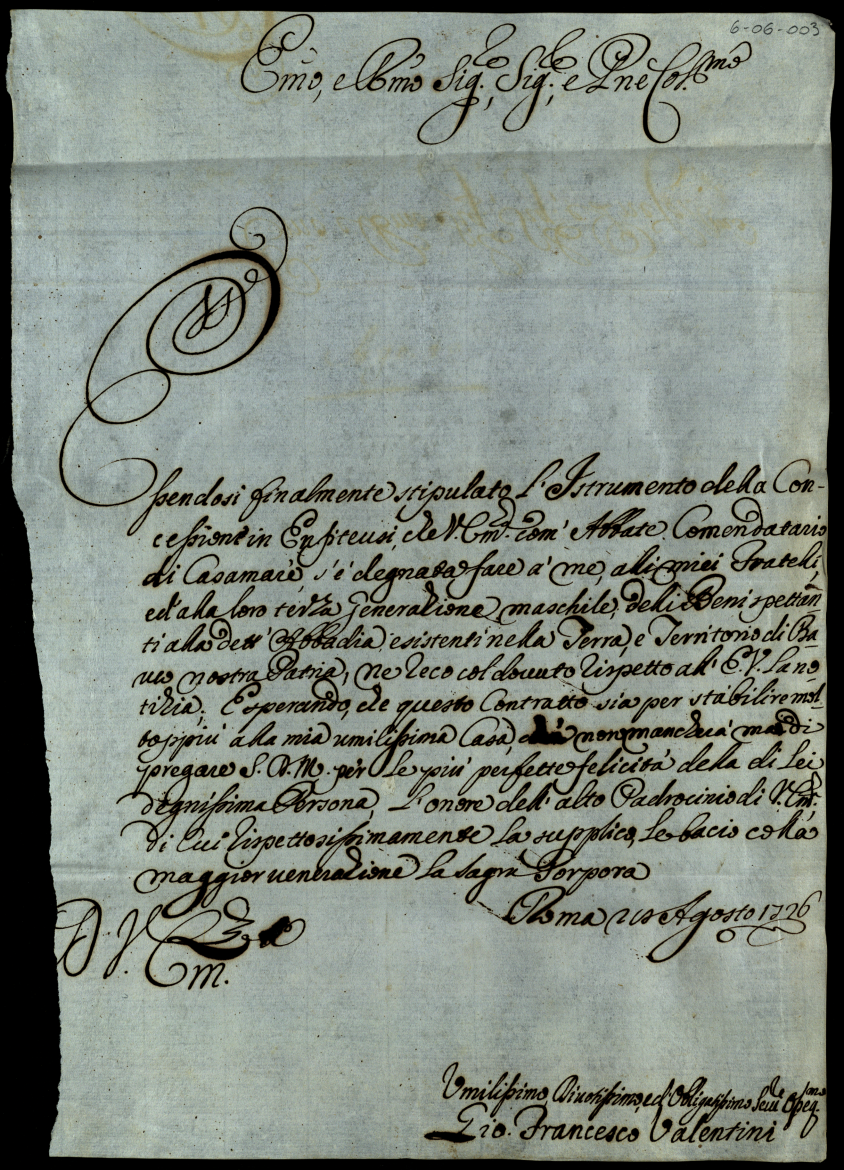 6-06-003
Emo, e Rmo Sig.re, Sig.re, e Pne Col.mo
Essendosi finalmente stipulato l'Istrumento della Con-
cessione in Enfiteusi, che V. Em.za com' Abbate Comendatario
di Casamare, s'è degnata fare a' me, alli miei Fratelli,
ed' alla loro terza generazione maschile, delli Beni spettan
ti alla dett' Abbadia, esistenti nella Terra, e Territorio di Ba
uco nostra Patria, ne reco col dovuto rispetto all' E. V. la no
tizia; Esperando, che questo Contratto sia per stabilire mol
toppiù alla mia umilissima Casa, non mancherà mai di
pregare S. D. M. per le più perfette felicità della di Lei
degnissima Persona, l'onore dell' alto Padrocinio di V. Em.za
di cui rispettosissimamente la supplico, le bacio colla
maggior venerazione la sagra Porpora
Roma Agosto 1726
D. V. Em.
Umilissimo, Divotissimo, ed' Obligatissimo Serv.re Osseq.mo
Gio. Francesco Valentini